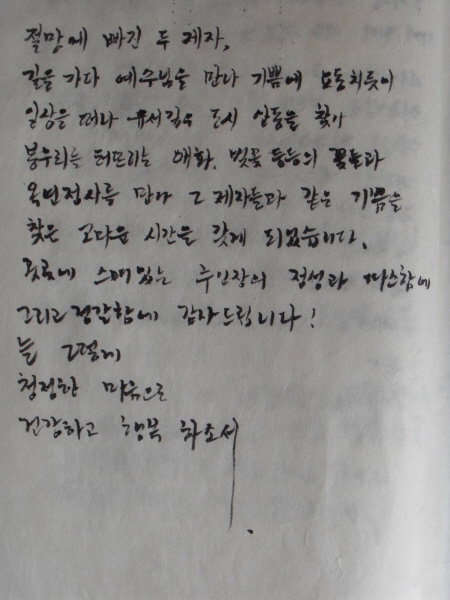 절망에 빠진 두 제자,
길을 가다 예수님을 만나 기쁨에 요동치듯이
일상을 떠나 유서깊은 도시 안동을 찾아
봉우리를 터뜨리는 매화, 벚꽃 등등의 꽃들과
옥연정사를 만나 그 제자들과 같은 기쁨을
찾은 고다운 시간을 갖게 되었습니다.
곳곳에 스며있는 주인장의 정성과 따스함에
그리고 정갈함에 감사드립니다!
늘 그렇게
청정한 마음으로
건강하고 행복 하소서.